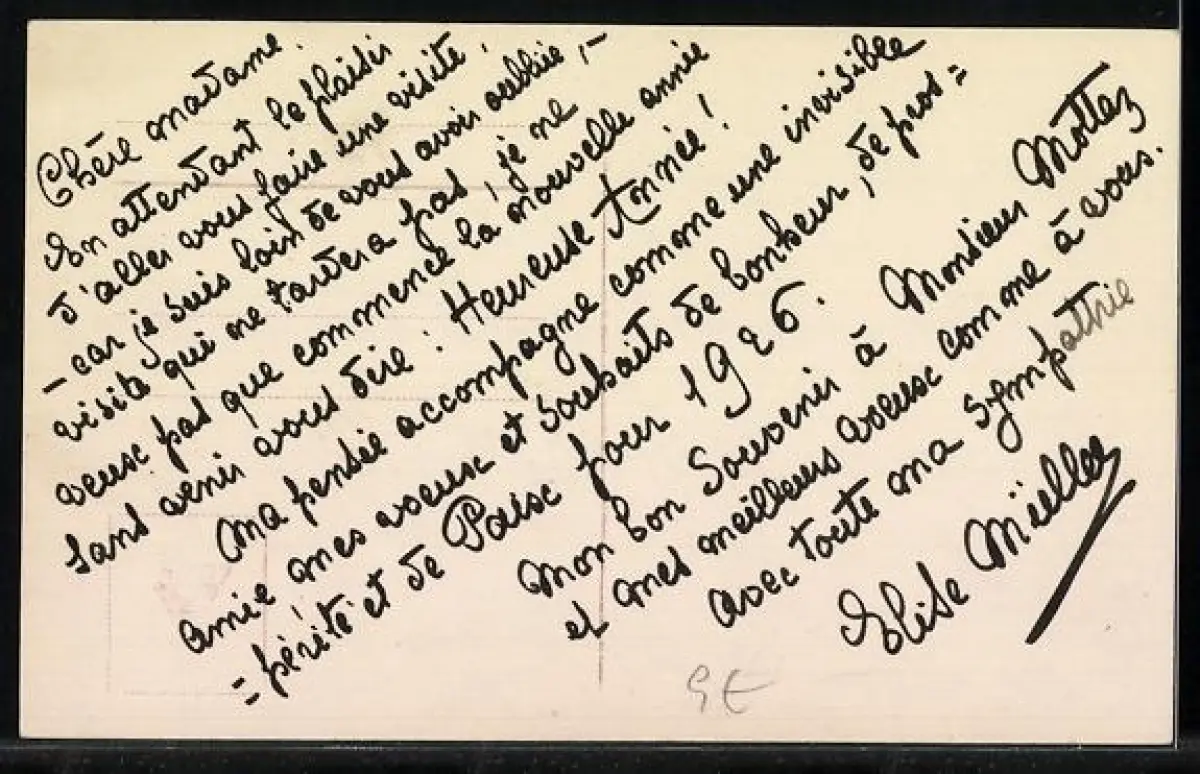 Chère madame.
En attendant le plaisir
d'aller vous faire une visite,
- car je suis loin de vous avoir oubliée, -
visite qui ne tardera pas, je ne
veux pas que commence la nouvelle année
sans venir vous dire : Heureuse Année !
Ma pensée accompagne comme une invisible
amie mes voeux et souhaits de bonheur, de pros=
=périté et de Paix pour 1926.
Mon bon Souvenir à Monsieur Mottez
et mes meilleurs voeux comme à vous.
avec toute ma sympathie
Elise Müller
9 E